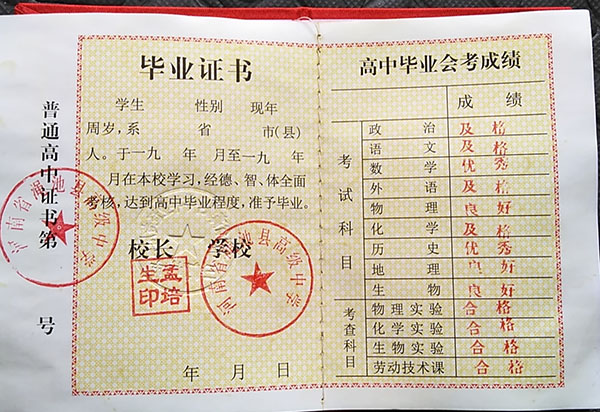 普通高中证书第 号
毕业证书
学生 性别 现年
周岁，系 省 市(县)
人。于一九 年 月至一九 年
月在本校学习，经德、智、体全面
考核，达到高中毕业程度，准予毕业。
校长 学校
孟培生印
河南省渑池县高级中学
河南省渑池县高级中学
年 月 日
高中毕业会考成绩
成绩
考试科目
政治 及格
语文 及格
数学 优秀
外语 及格
物理 良好
化学 及格
历史 优秀
地理 良好
生物 良好
考查科目
物理实验 合格
化学实验 合格
生物实验 合格
劳动技术课 合格